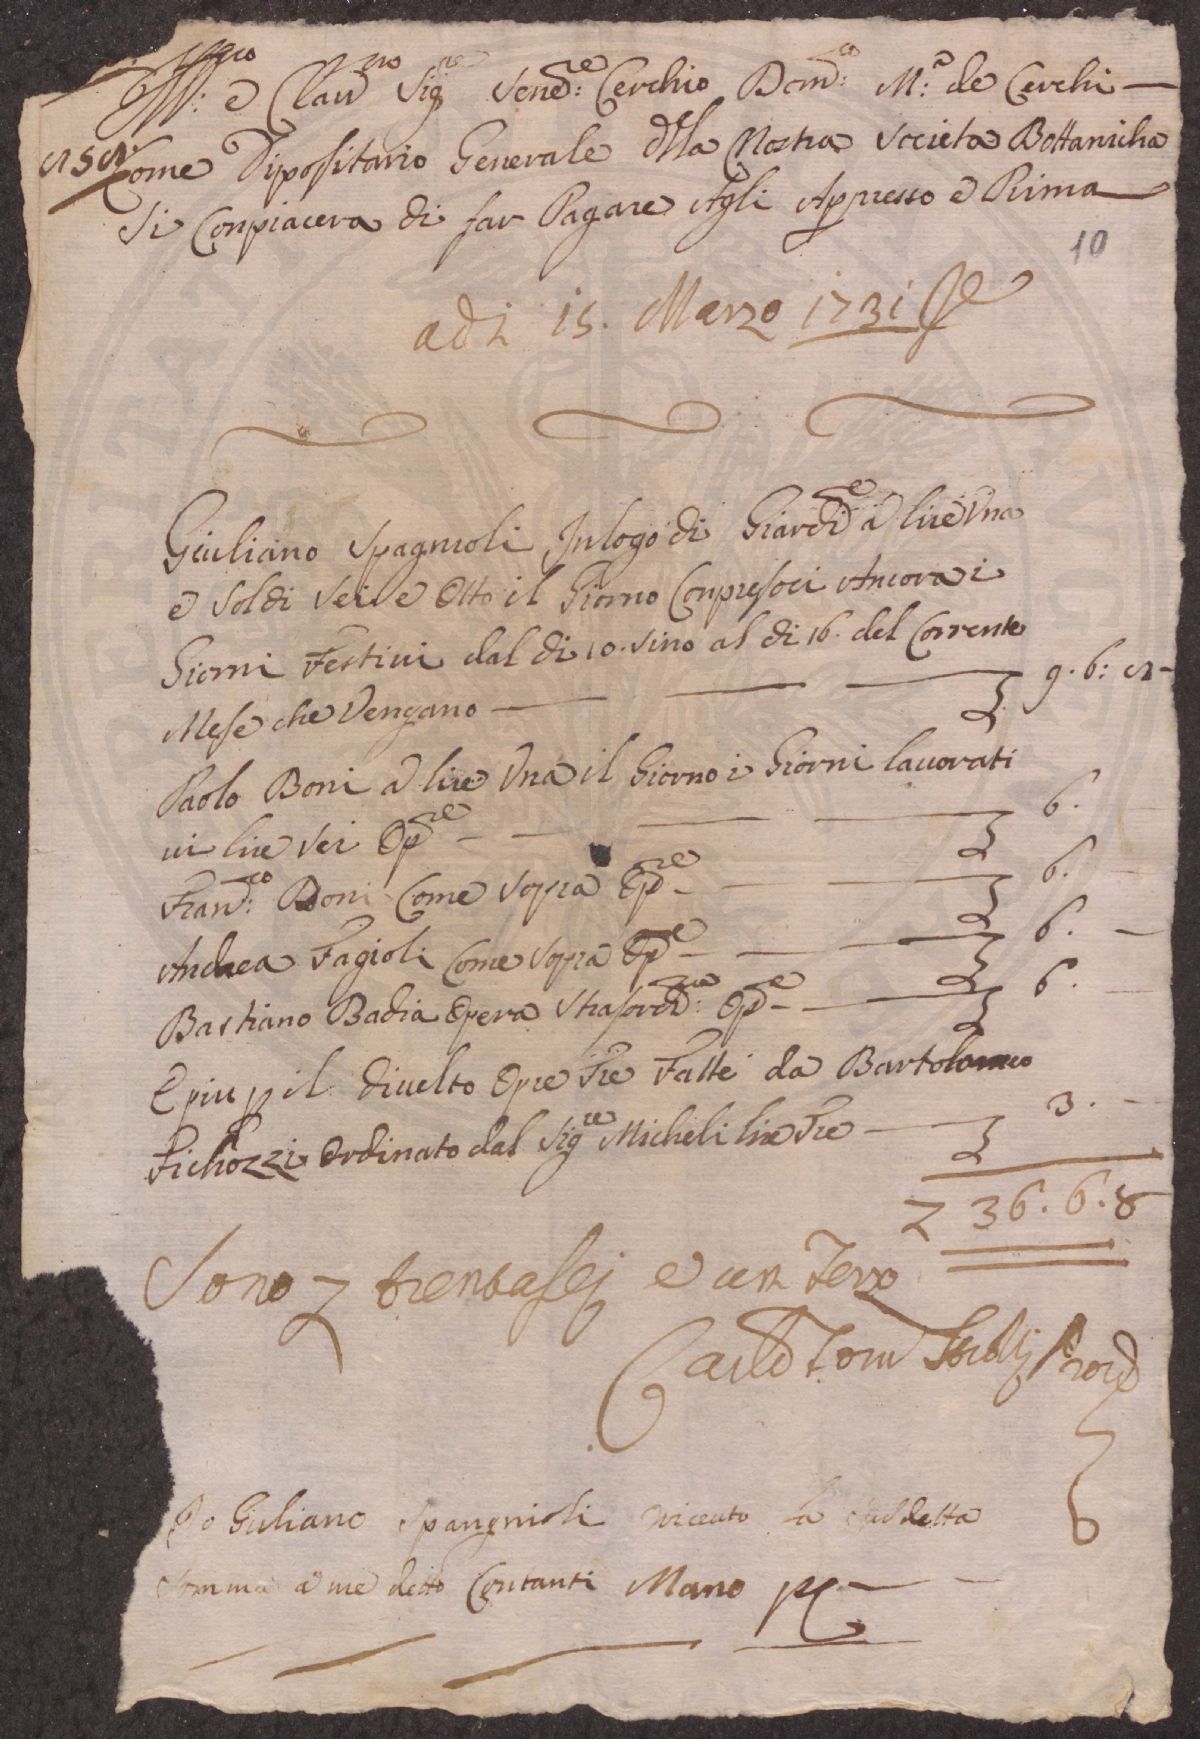 Ill: e Clar Sig Vene: Cerchio Dom: M: de Cerchi
Come Dipositario Generale della Nostra Societa Bottanicha
Si Conpiacera di far Pagare Agli Apresso e Prima
10
adi 15. Marzo 1731
Giuliano Spagnioli In logo di Giard a lire Una
e Soldi Sei e Otto il Giorno Conpresoci Ancora i
Giorni Festivi dal di 10. Sino al di 16. del Corrente
Mese che Vengano 9. 6: 8
Paolo Boni a lire Una il Giorno i Giorni lavorati
in lire Sei Op 6.
Fran: Boni Come Sopra Op 6.
Andrea Fagioli Come Sopra Op 6.
Bastiano Badia Opera Strasord: Op 6.
E piu p il divelto Opre Tre Fatte da Bartolomeo
Fichozzi Ordinato dal Sig Micheli lire Tre 3.
36. 6. 8
Sono trentasej e un Terzo
Io Giuliano Spangnioli o riceuto la sudetta
Somma a me detto Contanti Mano